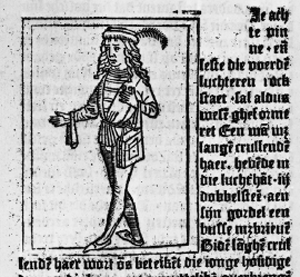 Je ach
te pin
ne · eñ
leste die voerdẽ
luchteren rock
staet · sal aldus
wesẽ ghesorme
ret Een mã mʒ
langẽ crullendẽ
haer · hebbẽde in
die luchtˢ hãt · iij
dobbelstee · aen
sijn gordel een
busse mʒ brieuẽ
Bidẽ lãghẽ crul
lendẽ haer wort õs beteikẽt die ionge houdige